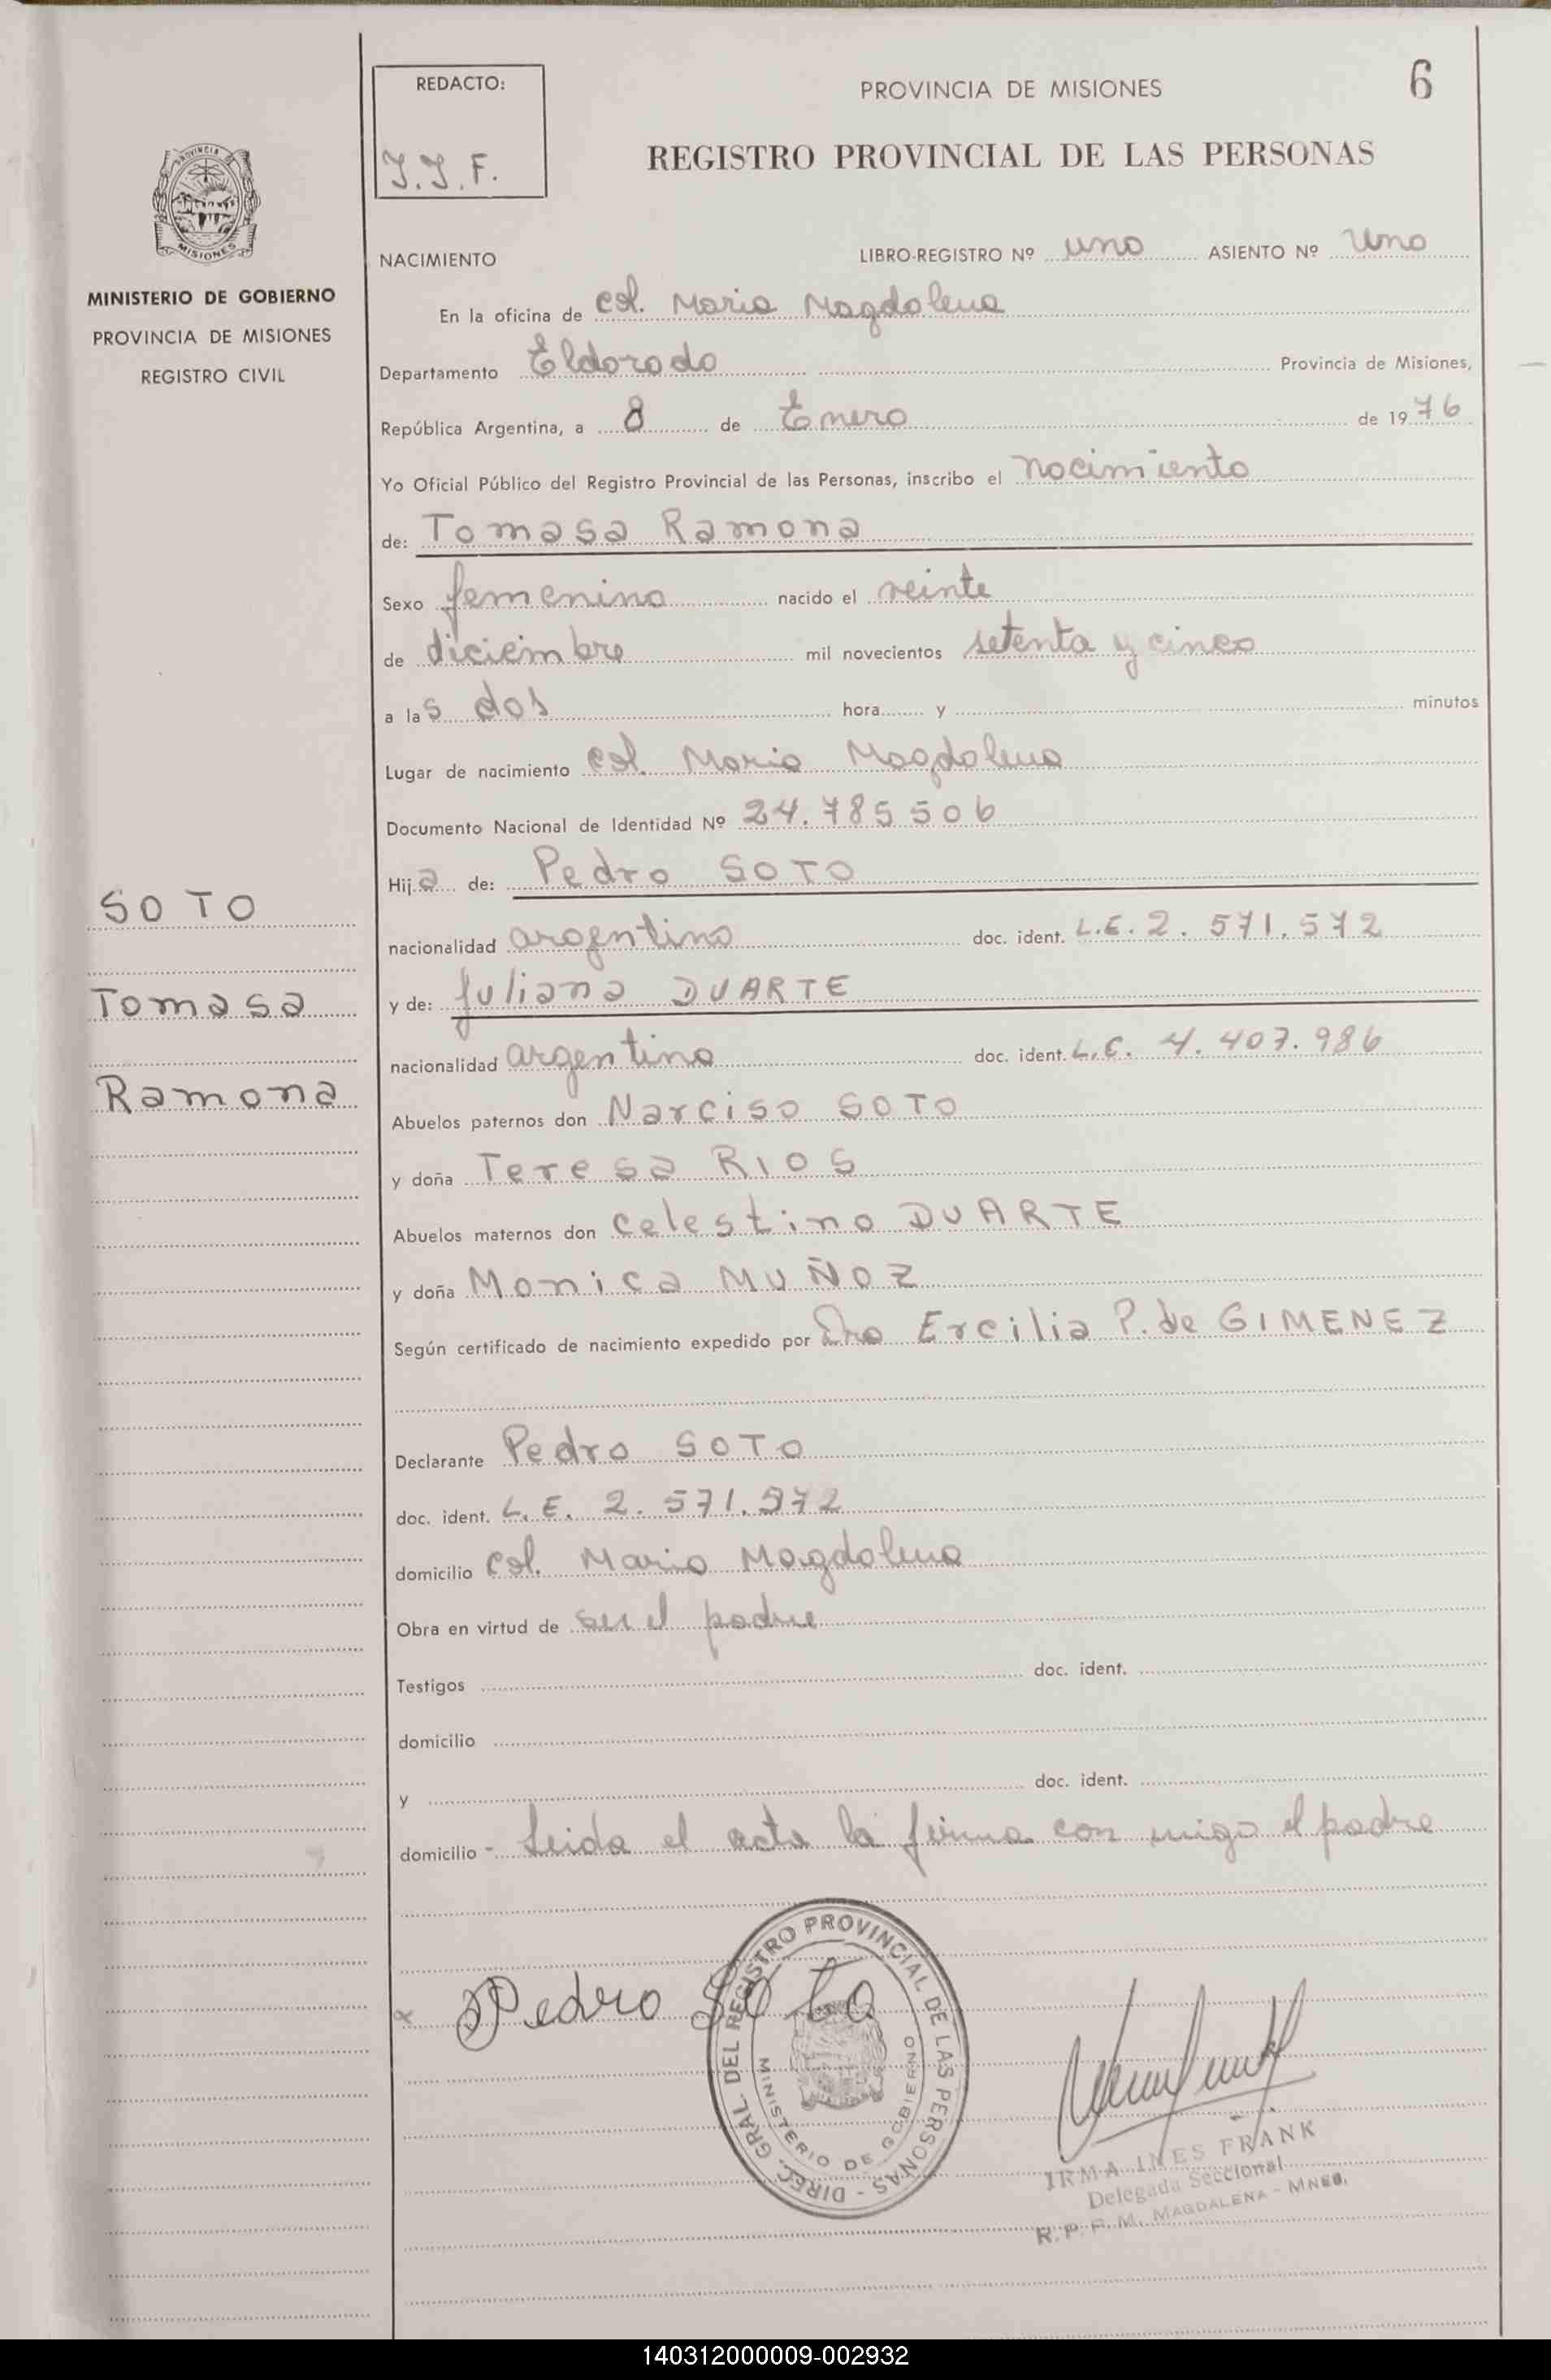 REDACTO:
I.I.F.
PROVINCIA DE MISIONES
6
REGISTRO PROVINCIAL DE LAS PERSONAS
PROVINCIA
MISIONES
MINISTERIO DE GOBIERNO
PROVINCIA DE MISIONES
REGISTRO CIVIL
NACIMIENTO LIBRO-REGISTRO Nº uno ASIENTO Nº Uno
En la oficina de Col. Maria Magdalena
Departamento Eldorado Provincia de Misiones,
República Argentina, a 8 de Enero de 1976
Yo Oficial Público del Registro Provincial de las Personas, inscribo el nacimiento
de: Tomasa Ramona
Sexo femenino nacido el veinte
de diciembre mil novecientos setenta y cinco
a las dos hora y minutos
Lugar de nacimiento Col. Maria Magdalena
Documento Nacional de Identidad Nº 24.785506
Hija de: Pedro SOTO
nacionalidad argentino doc. ident. L.E. 2.571.572
y de: Juliana DUARTE
nacionalidad argentina doc. ident. L.C. 4.407.986
Abuelos paternos don Narciso SOTO
y doña Teresa RIOS
Abuelos maternos don Celestino DUARTE
y doña Monica MUÑOZ
Según certificado de nacimiento expedido por Dra Ercilia P. de GIMENEZ
Declarante Pedro SOTO
doc. ident. L.E. 2.571.972
domicilio Col. Maria Magdalena
Obra en virtud de ser el padre
Testigos doc. ident.
domicilio
y doc. ident.
domicilio - Leida el acta la firma con migo el padre
SOTO
Tomasa
Ramona
x Pedro Soto
DIREC. GRAL. DEL REGISTRO PROVINCIAL DE LAS PERSONAS -
MINISTERIO DE GOBIERNO
IRMA INES FRANK
Delegada Seccional
R. P. P. M. MAGDALENA - MNES.
140312000009-002932